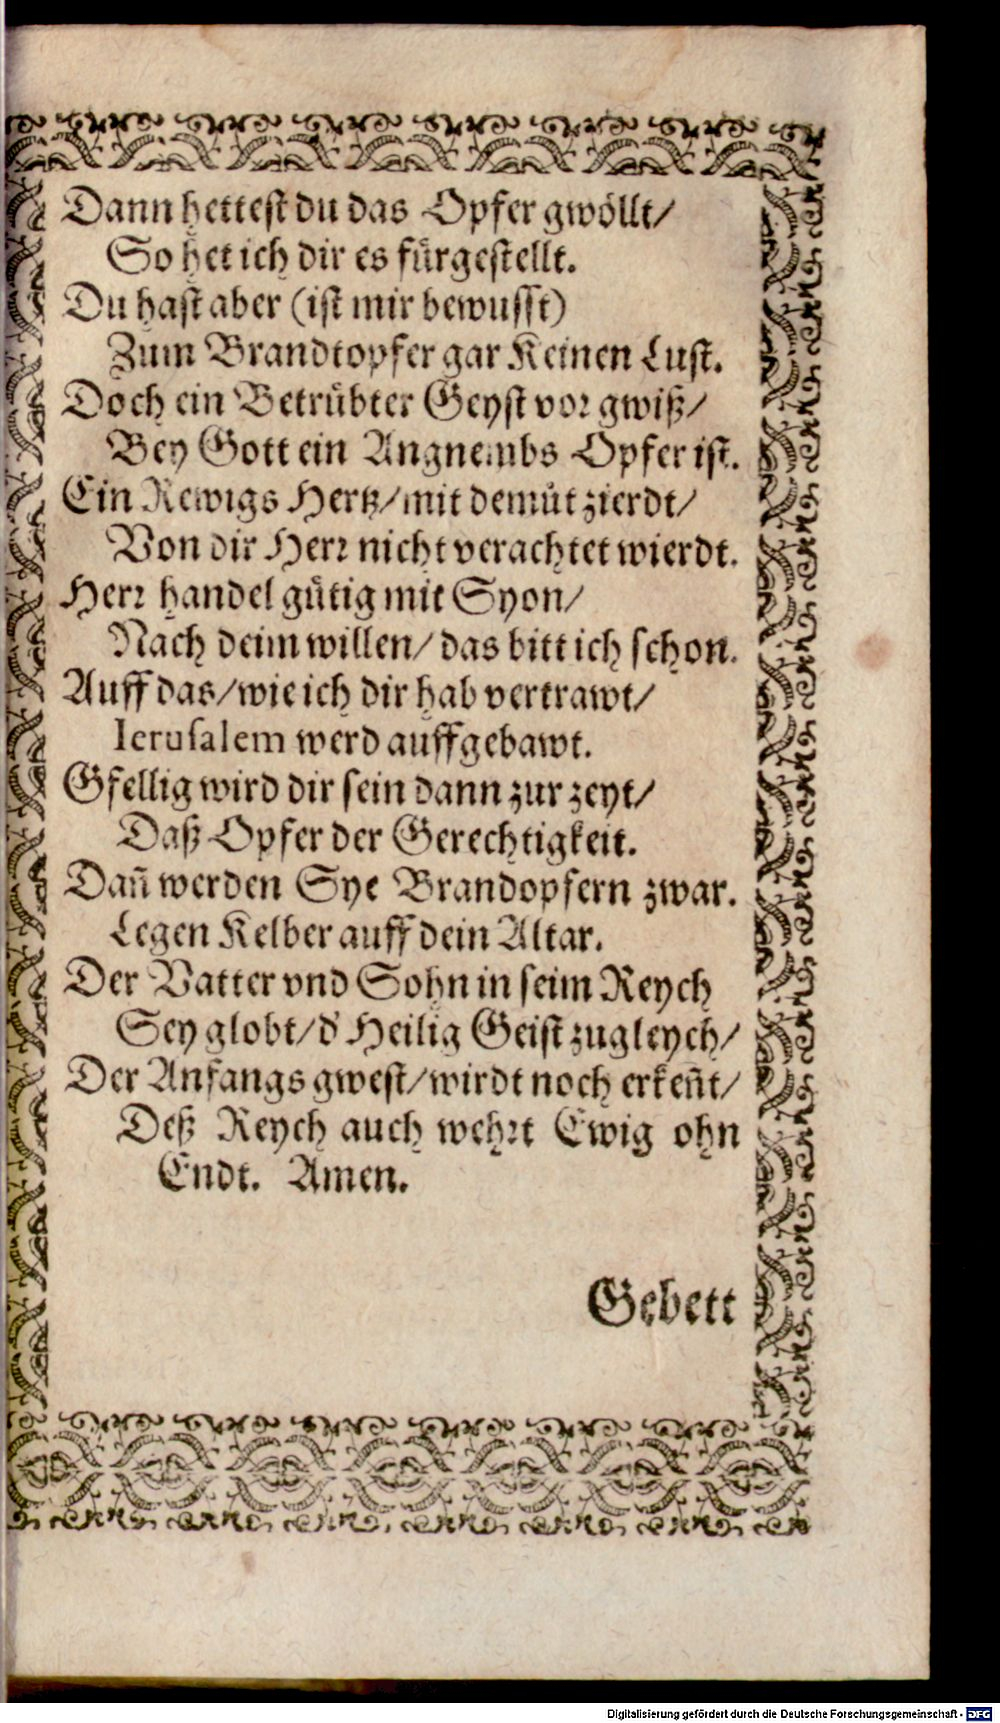 Dann hettest du das Opfer gwöllt/
So het ich dir es fürgestellt.
Du hast aber (ist mir bewusst)
Zum Brandtopfer gar Keinen Lust.
Doch ein Betrübter Geyst vor gwiß/
Bey Gott ein Angnembs Opfer ist.
Ein Rewigs Hertz/mit demüt zierdt/
Von dir Herr nicht verachtet wierdt.
Herr handel gütig mit Syon/
Nach deim willen/ das bitt ich schon.
Auff das/wie ich dir hab vertrawt/
Ierusalem werd auffgebawt.
Gfellig wird dir sein dann zur zeyt/
Daß Opfer der Gerechtigkeit.
Dañ werden Sye Brandopfern zwar.
Legen Kelber auff dein Altar.
Der Vatter vnd Sohn in seim Reych
Sey globt/d' Heilig Geist zugleych/
Der Anfangs gwest/wirdt noch erkeñt/
Deß Reych auch wehrt Ewig ohn
Endt. Amen.
Gebett
Digitalisierung gefördert durch die Deutsche Forschungsgemeinschaft - DFG